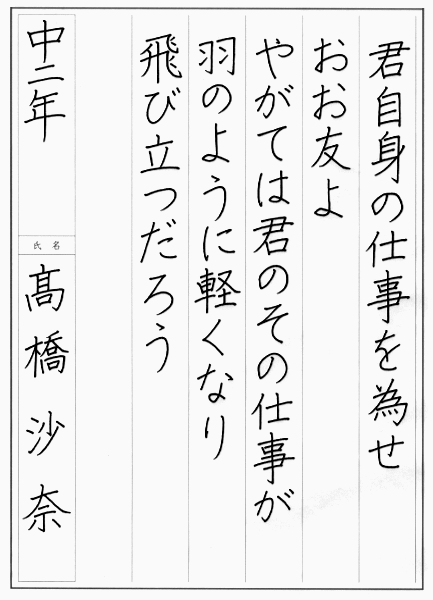 君自身の仕事を為せ
おお友よ
やがては君のその仕事が
羽のように軽くなり
飛び立つだろう
中二年
氏名
髙橋沙奈